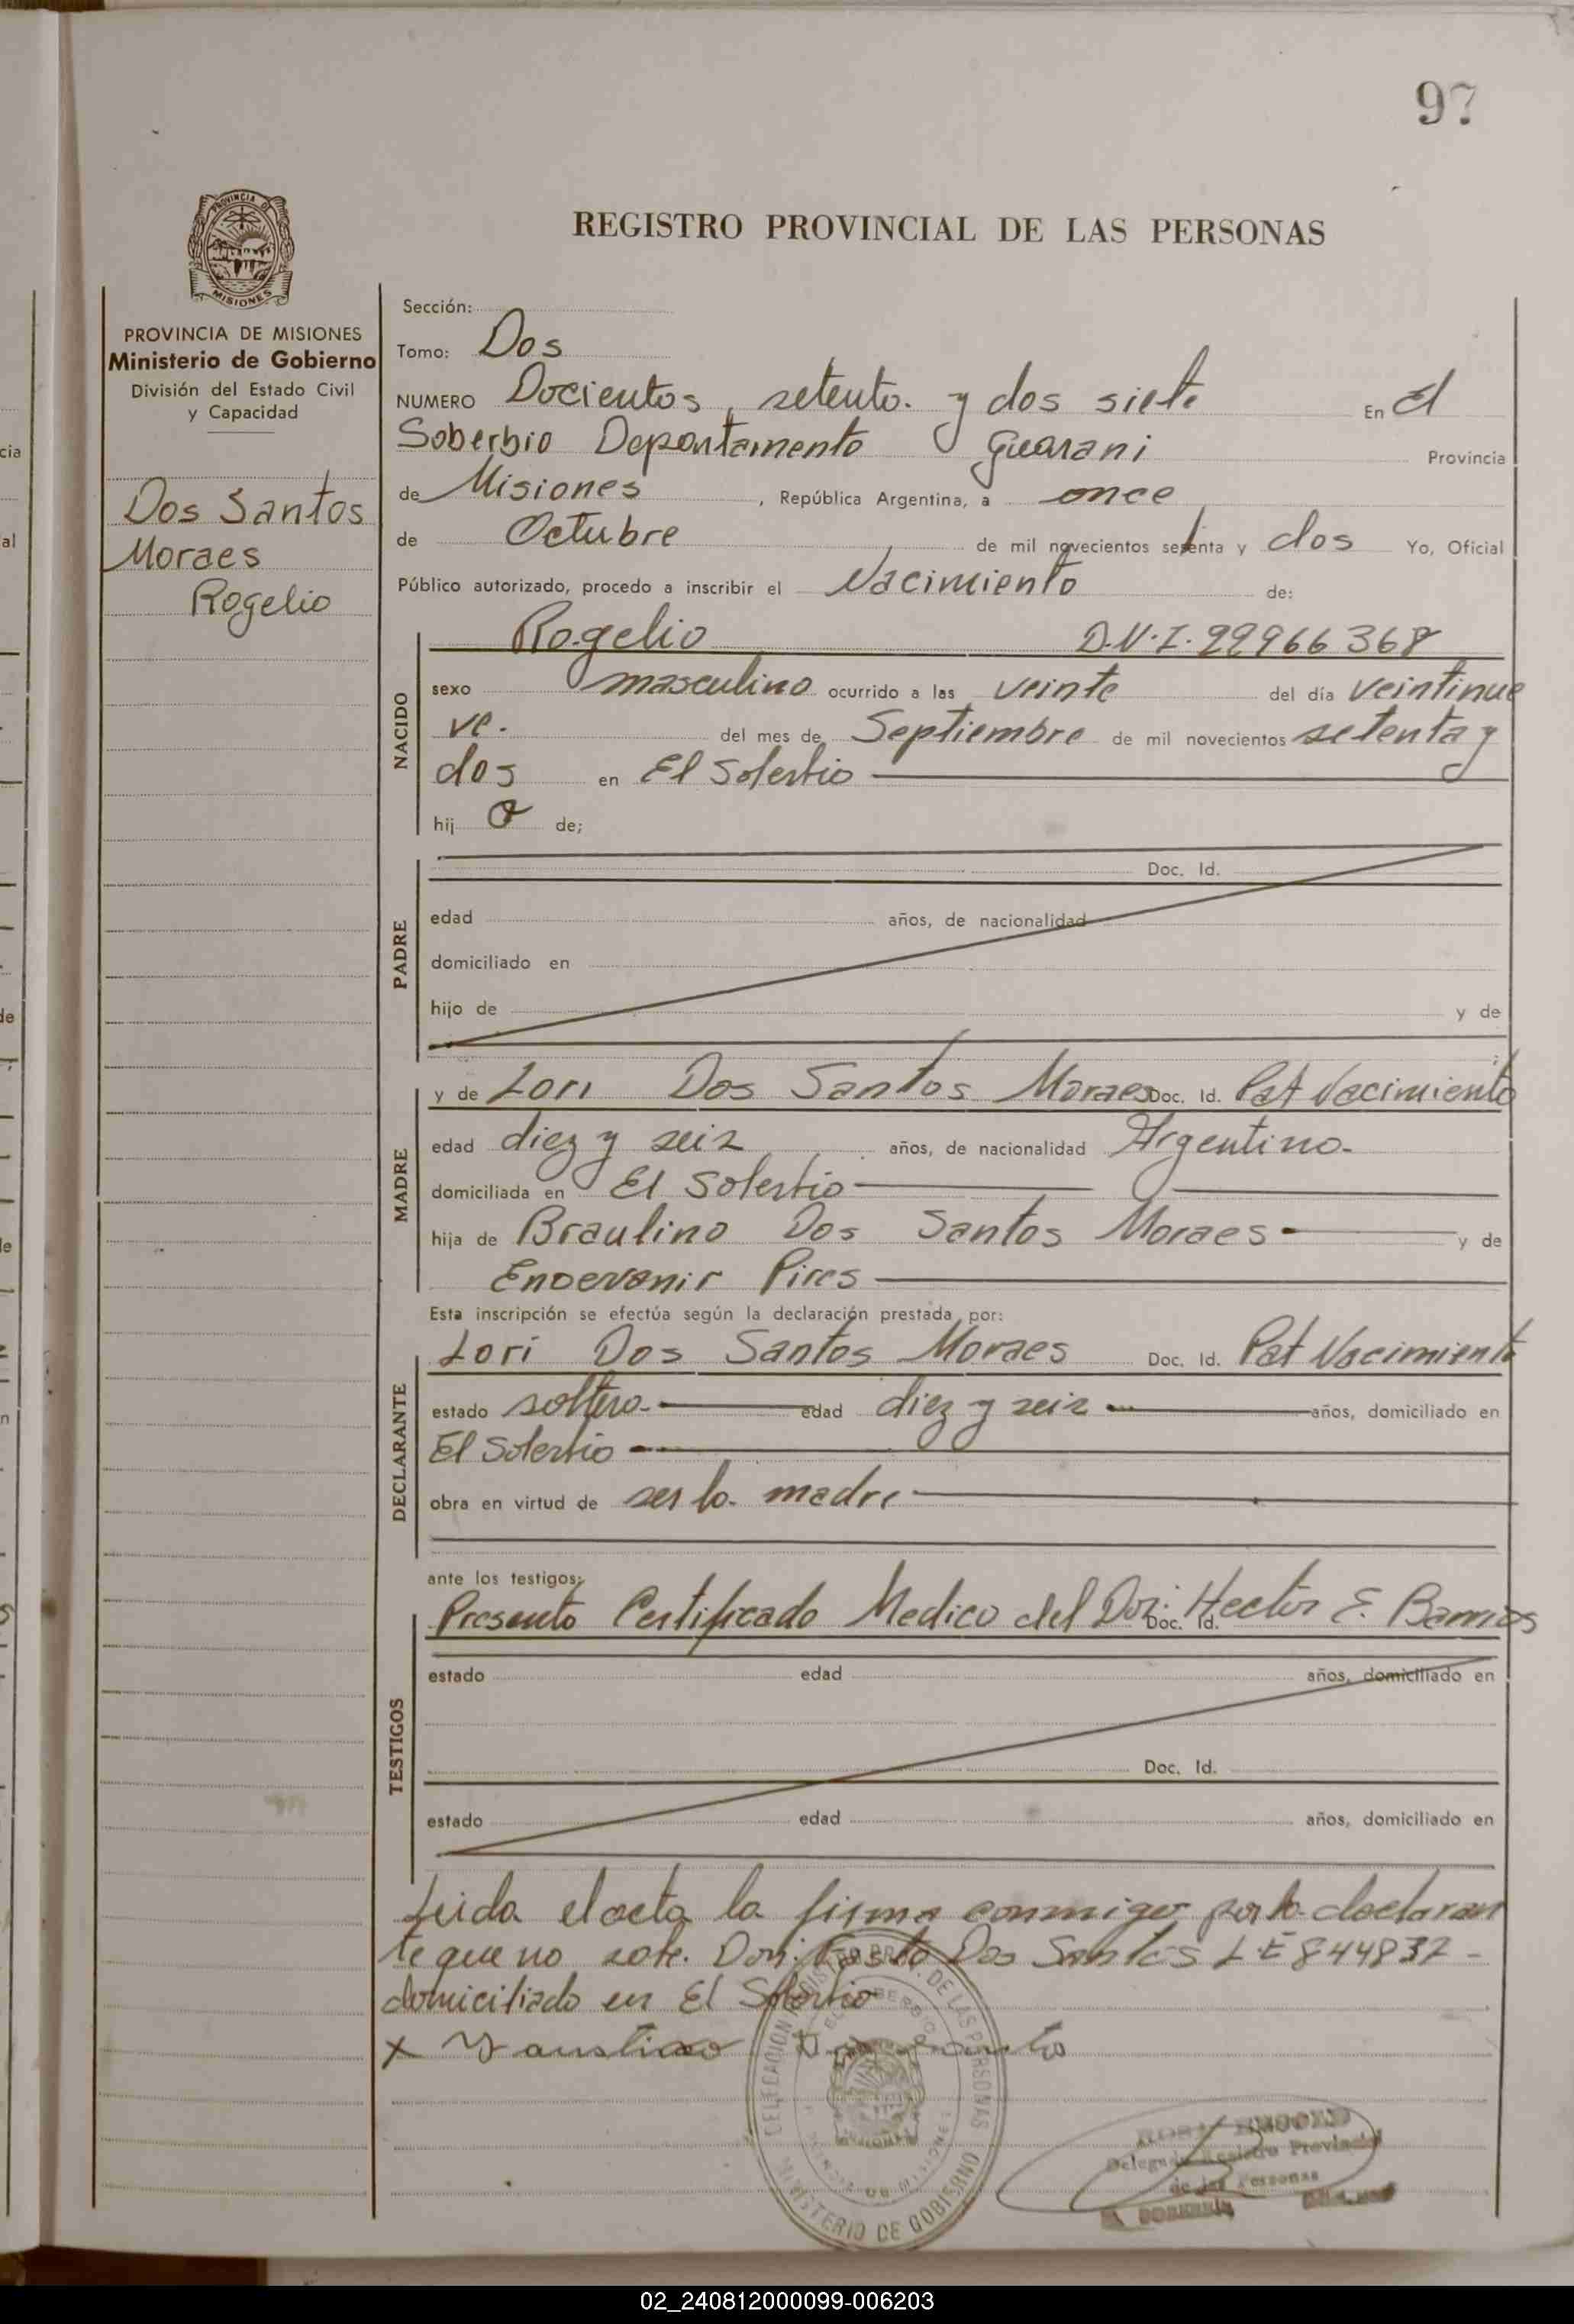 97
PROVINCIA DE
MISIONES
REGISTRO PROVINCIAL DE LAS PERSONAS
PROVINCIA DE MISIONES
Ministerio de Gobierno
División del Estado Civil
y Capacidad
Dos Santos
Moraes
Rogelio
Sección:
Tomo: Dos
NUMERO Docientos, setenta. y dos siete En El
Soberbio Departamento Guarani Provincia
de Misiones, República Argentina, a once
de Octubre de mil novecientos setenta y dos Yo, Oficial
Público autorizado, procedo a inscribir el Nacimiento de:
NACIDO
Rogelio D.N.I. 22966368
sexo masculino ocurrido a las veinte del día veintinue
ve. del mes de Septiembre de mil novecientos setenta y
dos en El Soberbio
hij o de;
PADRE
Doc. Id.
edad años, de nacionalidad
domiciliado en
hijo de y de
MADRE
y de Lori Dos Santos Moraes Doc. Id. Pat Nacimiento
edad diez y seis años, de nacionalidad Argentina.
domiciliada en El Soberbio
hija de Braulino Dos Santos Moraes y de
Pires
Esta inscripción se efectúa según la declaración prestada por:
DECLARANTE
Lori Dos Santos Moraes Doc. Id. Pat Nacimiento
estado soltera. edad diez y seis años, domiciliado en
El Soberbio
obra en virtud de ser la. madre
ante los testigos:
TESTIGOS
Presento Certificado Medico del Dor: Hector E. Barrios Doc. Id.
estado edad años, domiciliado en
Doc. Id.
estado edad años, domiciliado en
Leida el acta la firma conmigo por la declaran
te que no sabe. Don: Dos Santos L.E 844837 -
domiciliado en El Soberbio
x
DELEGACION REGISTRO PROV. DE LAS PERSONAS
EL SOBERBIO
MINISTERIO DE GOBIERNO
Delegada Registro Provincial
de las Personas
02_240812000099-006203